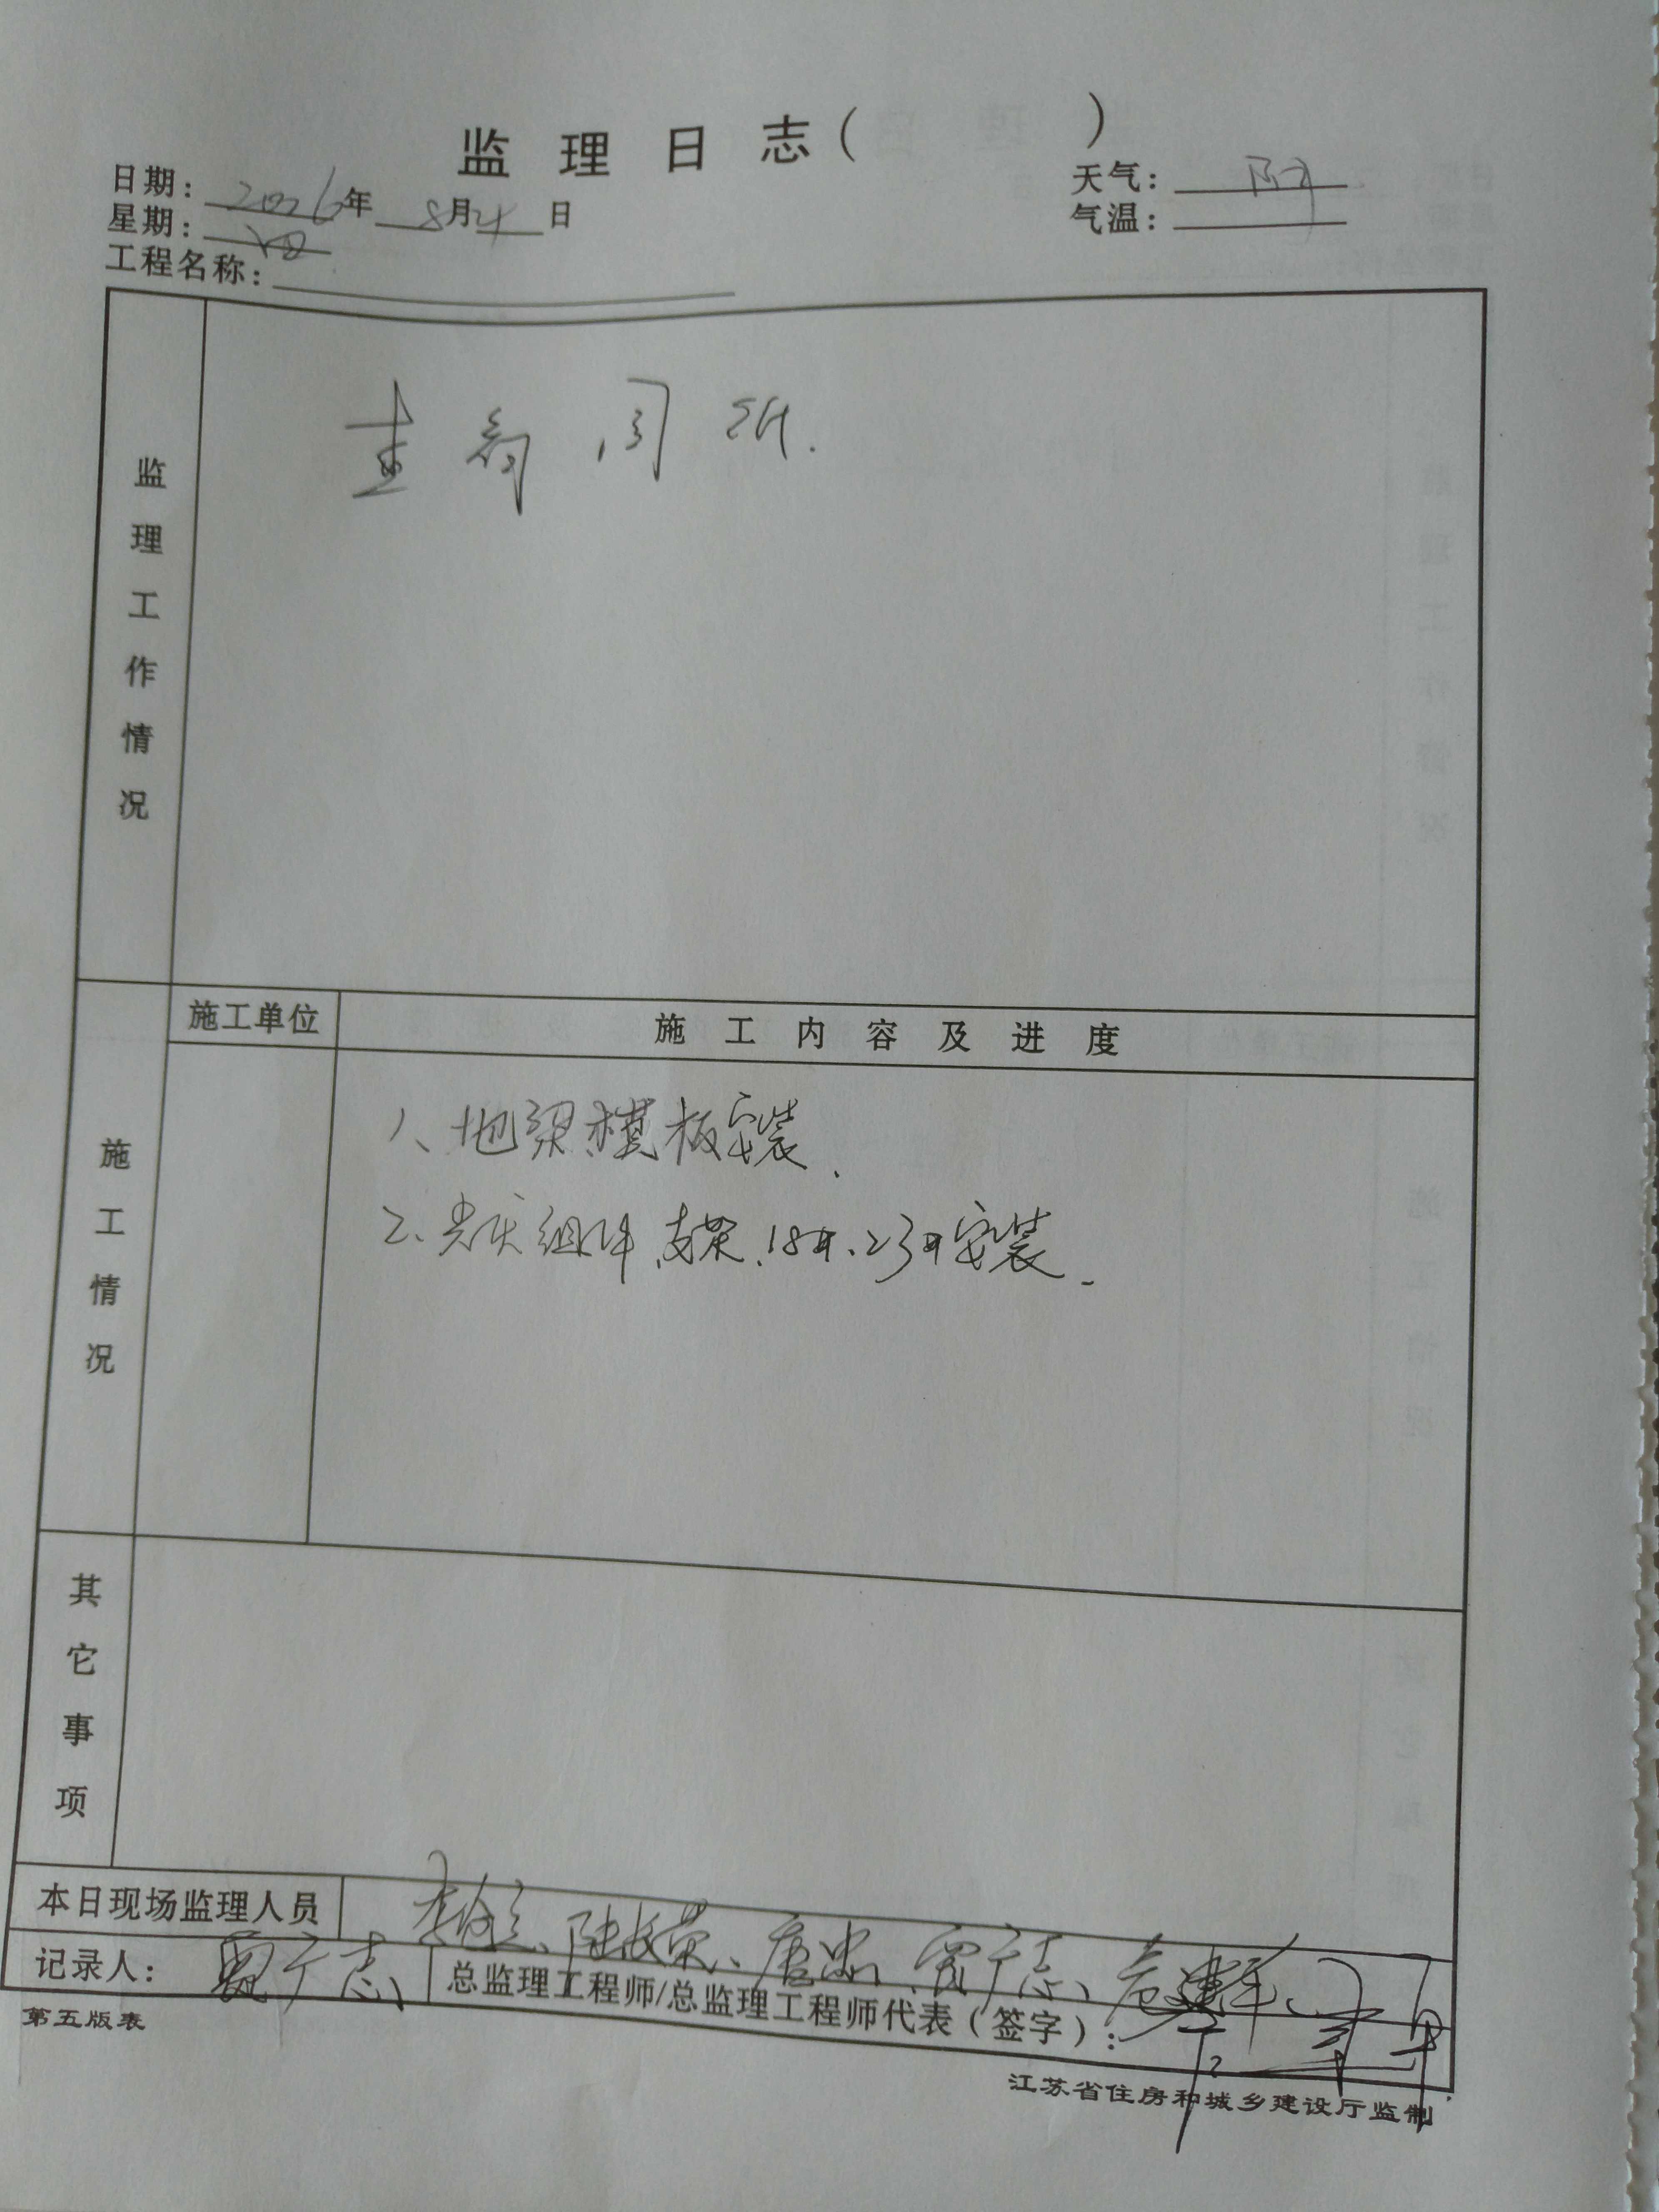 监理日志( )
日期: 2026年 8月4日
天气: 阴
星期:
气温:
工程名称:
监理工作情况
查看图纸.
施工单位
施工内容及进度
施工情况
1、地梁模板安装.
2、光伏组件、支架.18#、23#安装.
其它事项
本日现场监理人员
陆长荣、唐忠、贾广志、
记录人: 贾广志
总监理工程师/总监理工程师代表(签字):
第五版表
江苏省住房和城乡建设厅监制